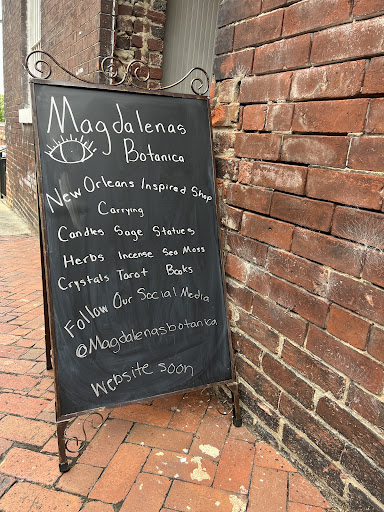 Magdalenas
Botanica
New Orleans Inspired Shop
Carrying
Candles Sage Statues
Herbs Incense Sea Moss
Crystals Tarot Books
Follow Our Social Media
@Magdalenasbotanica
Website soon